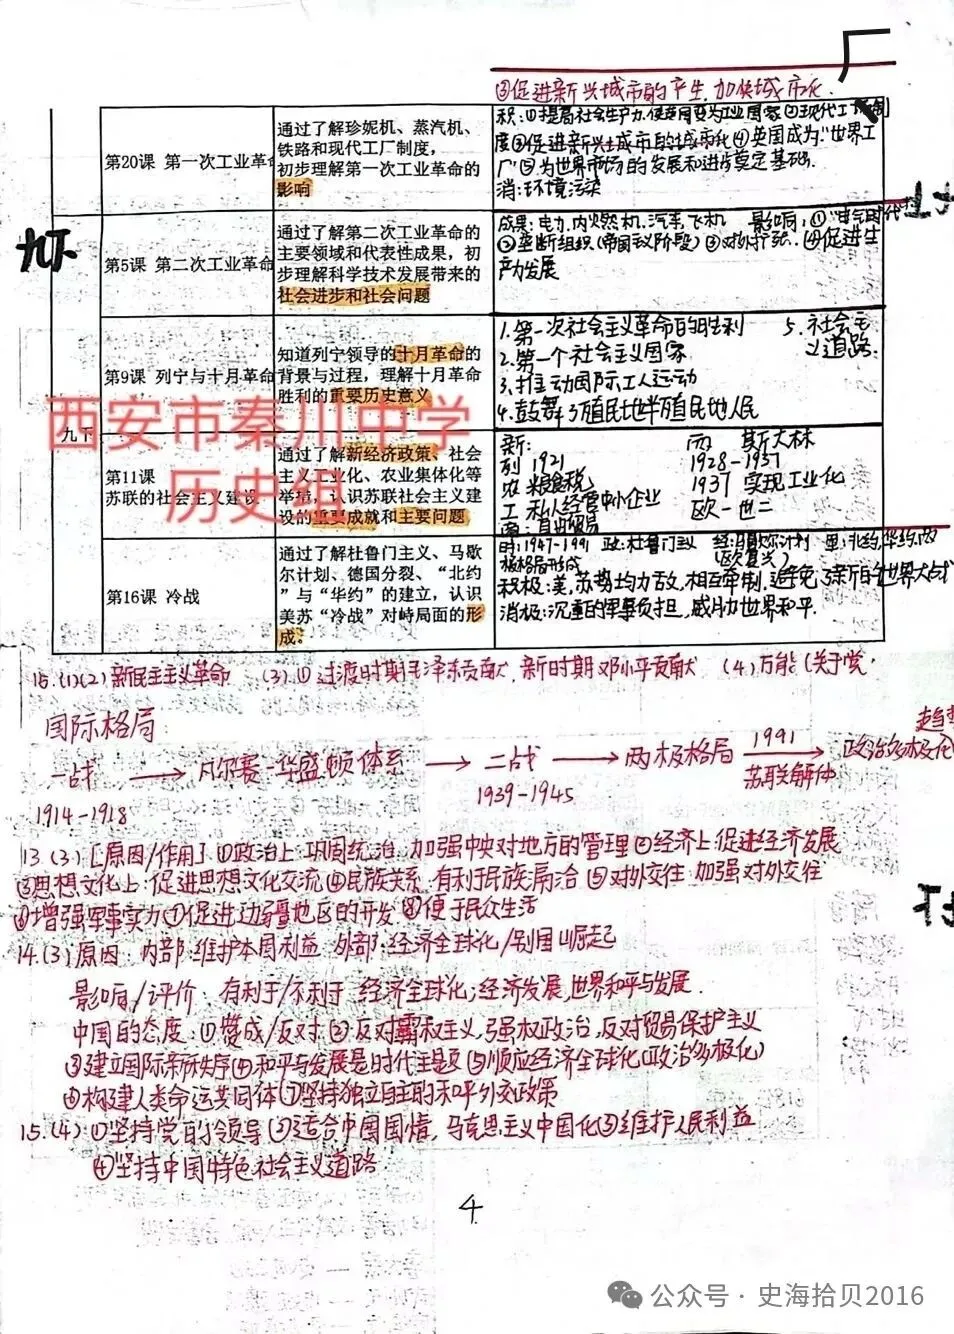 ③促进新兴城市的产生,加快城市化.
第20课 第一次工业革命
通过了解珍妮机、蒸汽机、
铁路和现代工厂制度,
初步理解第一次工业革命的
影响
积:①提高社会生产力,使英国变为工业国家②现代工厂制
度③促进新兴城市的城市化④英国成为"世界工
厂"⑤为世界市场的发展和进步奠定基础.
消:环境污染
九下
第5课 第二次工业革命
通过了解第二次工业革命的
主要领域和代表性成果,初
步理解科学技术发展带来的
社会进步和社会问题
成果:电力,内燃机,汽车,飞机 影响:①"电气时代"
②垄断组织(帝国主义阶段)③对外扩张.④促进生
产力发展
第9课 列宁与十月革命
知道列宁领导的十月革命的
背景与过程,理解十月革命
胜利的重要历史意义
1.第一次社会主义革命的胜利 5.社会主
义道路.
2.第一个社会主义国家
3.推动国际工人运动
4.鼓舞了殖民地半殖民地人民
九下
第11课
苏联的社会主义建设
通过了解新经济政策、社会
主义工业化、农业集体化等
举措,认识苏联社会主义建
设的重要成就和主要问题
新: 斯大林
列 1921 1928-1937
农 粮食税 1937 实现工业化
工 私人经营中小企业 欧一世二
商:自由贸易
第16课 冷战
通过了解杜鲁门主义、马歇
尔计划、德国分裂、“北约
”与“华约”的建立,认识
美苏“冷战”对峙局面的形
成。
时:1947-1991 政:杜鲁门主义 经:马歇尔计划 军:北约,华约,两
极格局形成 (欧复兴)
积极:美,苏势均力敌,相互牵制,避免了新的世界大战
消极:沉重的军费负担,威胁世界和平.
西安市秦川中学
历史组
15.(1)(2)新民主主义革命 (3)①过渡时期毛泽东贡献,新时期邓小平贡献 (4)万能(关于党,
国际格局
一战 → 凡尔赛-华盛顿体系 → 二战 → 两极格局 1991 苏联解体 → 政治多极化 趋势
1914-1918 1939-1945
13.(3)[原因/作用]①政治上:巩固统治,加强中央对地方的管理②经济上:促进经济发展
③思想文化上:促进思想文化交流④民族关系:有利于民族清洽⑤对外交往:加强对外交往
⑥增强军事实力⑦促进边疆地区的开发⑧便于民众生活
14.(3)原因:内部:维护本国利益 外部:经济全球化/别国崛起
影响/评价:有利于/不利于 经济全球化;经济发展,世界和平与发展.
中国的态度:①赞成/反对.②反对霸权主义,强权政治,反对贸易保护主义
③建立国际新秩序④和平与发展是时代主题⑤顺应经济全球化(政治多极化)
⑥构建人类命运共同体⑦坚持独立自主的和平外交政策
15.(4)①坚持党的领导②适合中国国情,马克思主义中国化③维护人民利益
④坚持中国特色社会主义道路
4
公众号·史海拾贝2016